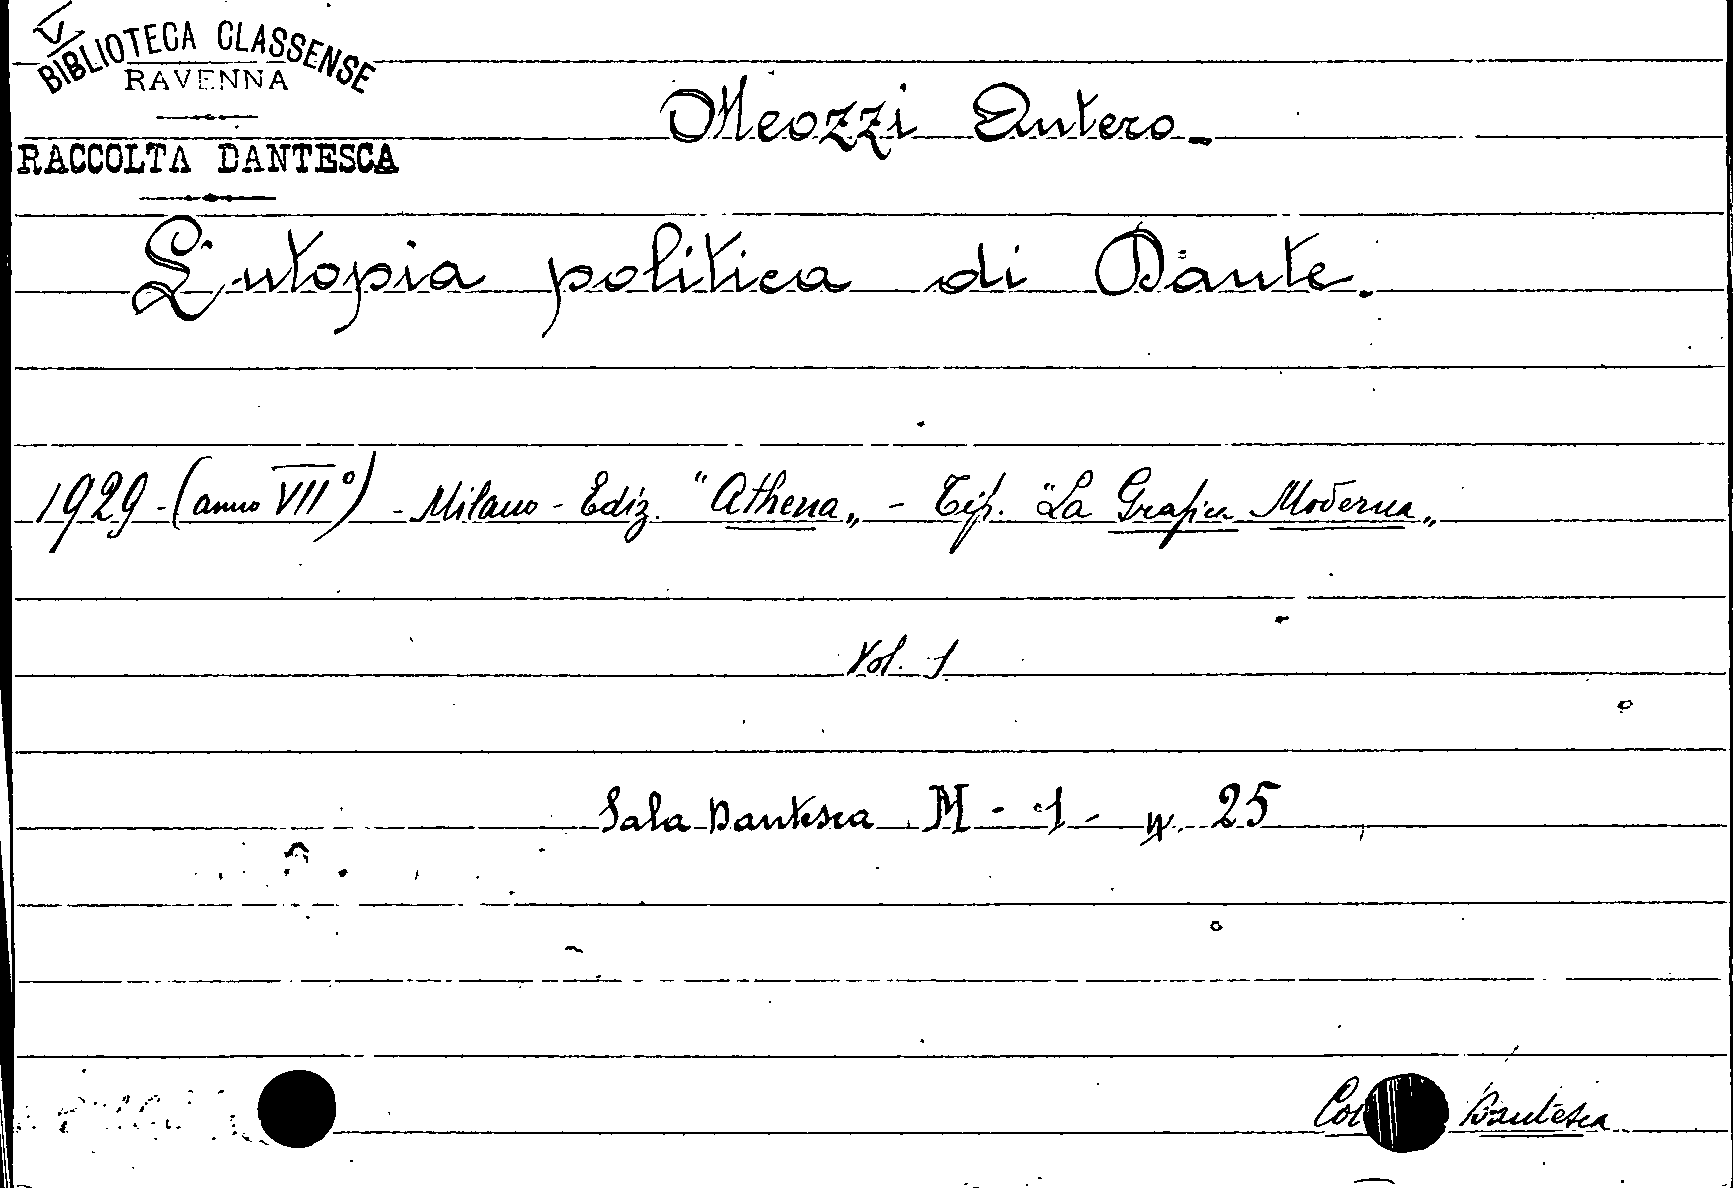 BIBLIOTECA CLASSENSE
RAVENNA
RACCOLTA DANTESCA
Meozzi Antero.
L'utopia politica di Dante.
1929 - (anno VII°) - Milano - Ediz. "Athena„ - Tip. "La Grafica Moderna„
Vol. 1
Sala Dantesca M - 1 - n. 25
Dantesca